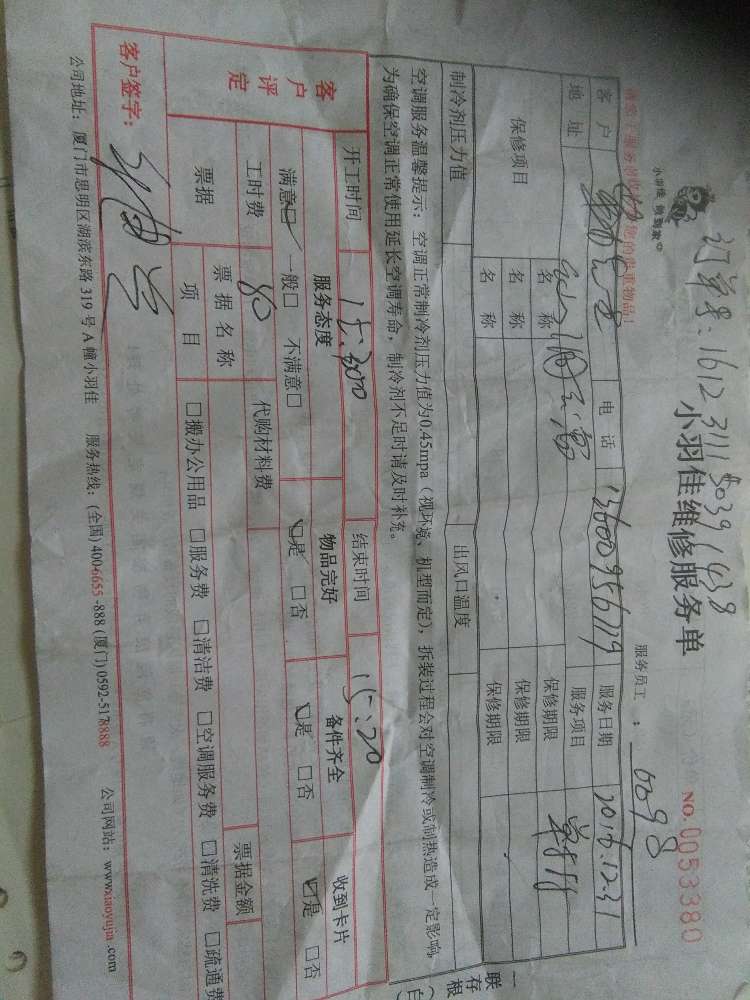 订单号：1612311180391438
小羽佳 做到家
小羽佳维修服务单
NO.0053380
服务员工：6698
客户 电话 13600956119 服务日期 2016.12.31
地址 服务项目
保修项目 名称 保修期限
名称 保修期限
名称 保修期限
制冷剂压力值 出风口温度
空调服务温馨提示：空调正常制冷剂压力值为0.45mpa（视环境、机型而定），拆装过程会对空调制冷或制热造成一定影响，
为确保空调正常使用延长空调寿命，制冷剂不足时请及时补充。
一存根（白
联
开工时间 结束时间 15:20
客户评定 服务态度 物品完好 备件齐全 收到卡片
满意☑ 一般□ 不满意□ ☑是 □否 ☑是 □否 ☑是 □否
工时费 80 代购材料费
票据 票据名称 票据金额
项目 □搬办公用品 □服务费 □清洁费 □空调服务费 □清洗费 □疏通费
客户签字：
公司地址：厦门市思明区湖滨东路319号A幢小羽佳 服务热线：(全国)400-6655-888 (厦门)0592-5178888 公司网站：www.xiaoyujia.com